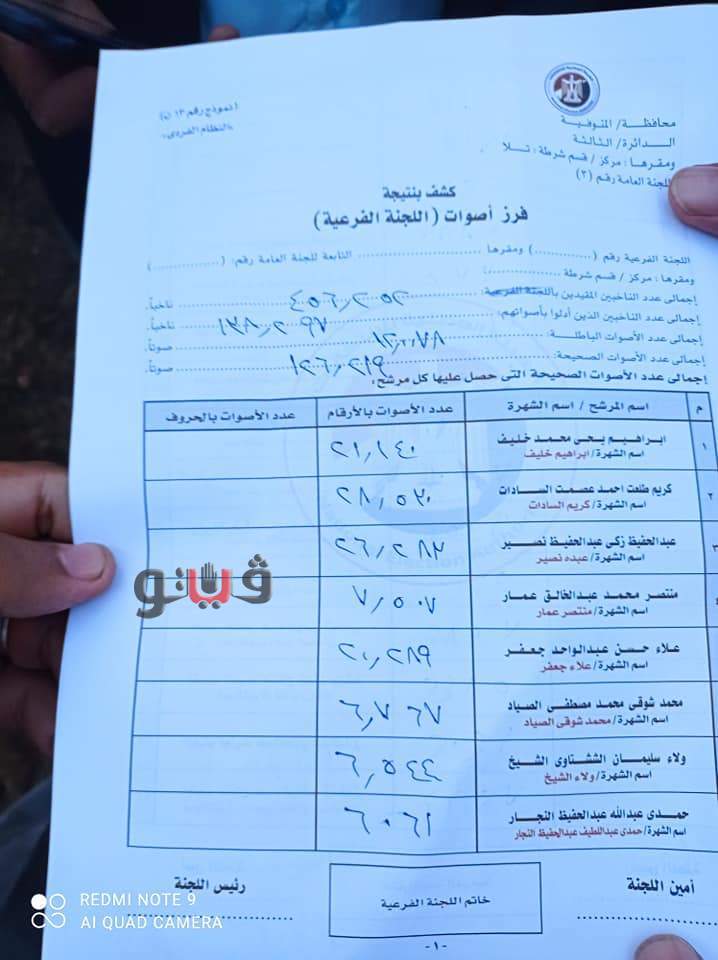 (نموذج رقم ١٣ ن)
«النظام الفردى»
محافظة/ المنوفية
الدائرة/ الثالثة
ومقرها: مركز/ قسم شرطة: تلا
اللجنة العامة رقم (٢)
كشف بنتيجة
فرز أصوات (اللجنة الفرعية)
اللجنة الفرعية رقم (..........) ومقرها .......... التابعة للجنة العامة رقم: (..........)
ومقرها: مركز/ قسم شرطة ..........
إجمالى عدد الناخبين المقيدين باللجنة الفرعية ٤٥٦,٢٥٢ ناخباً.
إجمالى عدد الناخبين الذين أدلوا بأصواتهم: ١٣٨,٢٩٧ ناخباً.
إجمالى عدد الأصوات الباطلة: ١٢,٠٧٨ صوتاً.
إجمالى عدد الأصوات الصحيحة: ١٢٦,٢١٩ صوتاً.
إجمالى عدد الأصوات الصحيحة التى حصل عليها كل مرشح:
م اسم المرشح / اسم الشهرة عدد الأصوات بالأرقام عدد الأصوات بالحروف
١ ابراهيم يحى محمد خليف ٢١,١٤٠
اسم الشهرة/ ابراهيم خليف
٢ كريم طلعت احمد عصمت السادات ٢٨,٥٢٠
اسم الشهرة/ كريم السادات
٣ عبدالحفيظ زكى عبدالحفيظ نصير ٢٦,٢٨٢
اسم الشهرة/ عبده نصير
٤ منتصر محمد عبدالخالق عمار ٧,٥٠٧
اسم الشهرة/ منتصر عمار
علاء حسن عبدالواحد جعفر ٢٠,٢٨٩
اسم الشهرة/ علاء جعفر
محمد شوقى محمد مصطفى الصياد ٦,٧٦٧
اسم الشهرة/ محمد شوقى الصياد
ولاء سليمان الششتاوى الشيخ ٦,٥٤٤
اسم الشهرة/ ولاء الشيخ
حمدى عبدالله عبدالحفيظ النجار ٦٠٦١
اسم الشهرة/ حمدى عبداللطيف عبدالحفيظ النجار
أمين اللجنة
خاتم اللجنة الفرعية
رئيس اللجنة
-١-
ڤيتو
REDMI NOTE 9
AI QUAD CAMERA